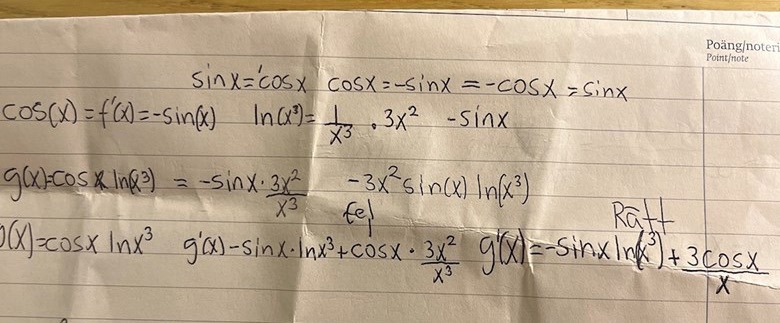 Poäng/noteri
Point/note
sinx='cosx cosx=-sinx =-cosx =sinx
cos(x)=f'(x)=-sin(x) ln(x³)=1/x³ · 3x² -sinx
g(x)=cosx ln(x³) = -sinx·3x²/x³ -3x²sin(x) ln(x³)
fel Rätt
(x)=cosx lnx³ g'(x)-sinx·lnx³+cosx·3x²/x³ g'(x)=-sinx ln(x³)+3cosx/x